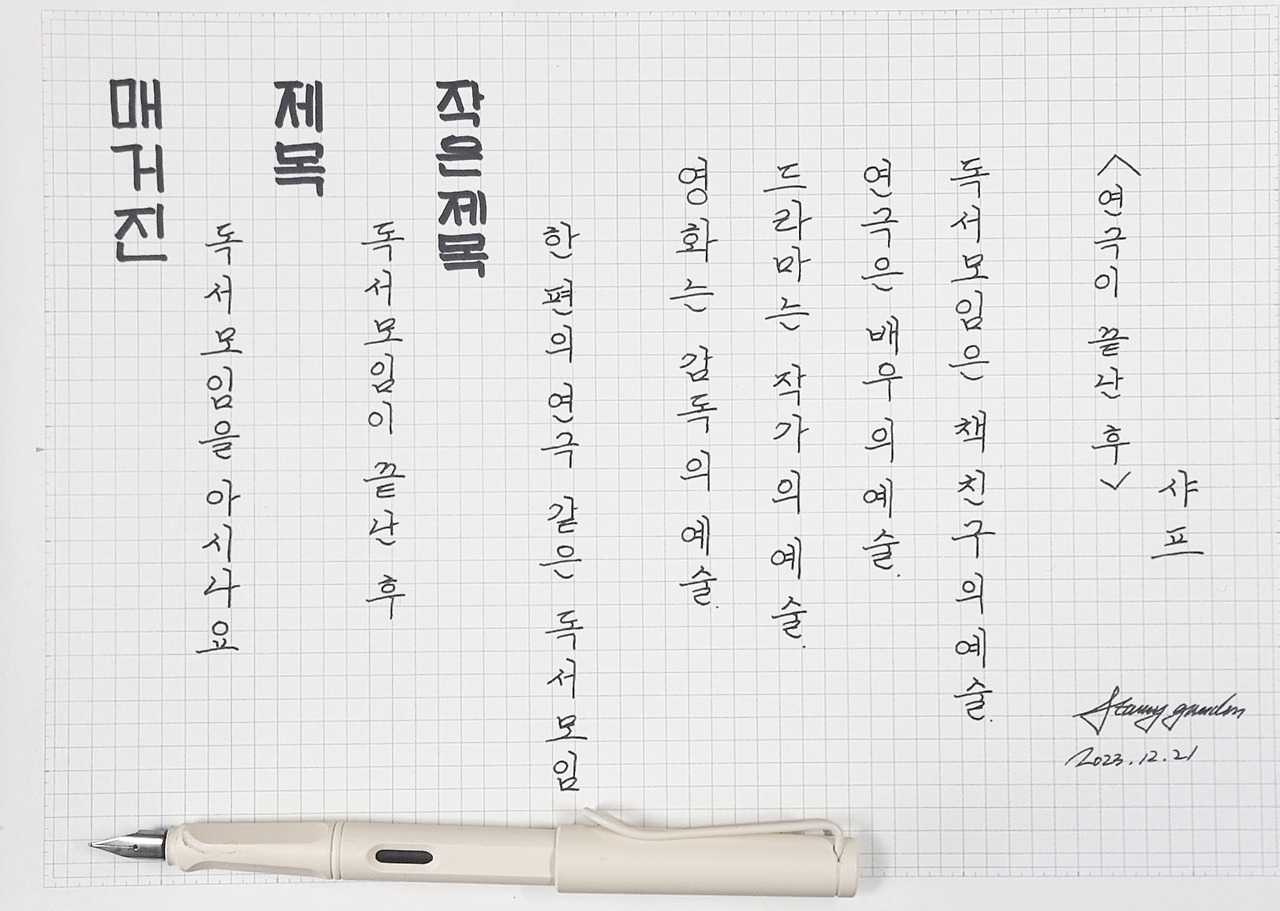 매거진
독서모임을 아시나요
제목
독서모임이 끝난 후
작은제목
한 편의 연극 같은 독서모임
영화는 감독의 예술.
드라마는 작가의 예술.
연극은 배우의 예술.
독서모임은 책친구의 예술.
<연극이 끝난 후>
샤프
Starry garden
2023.12.21